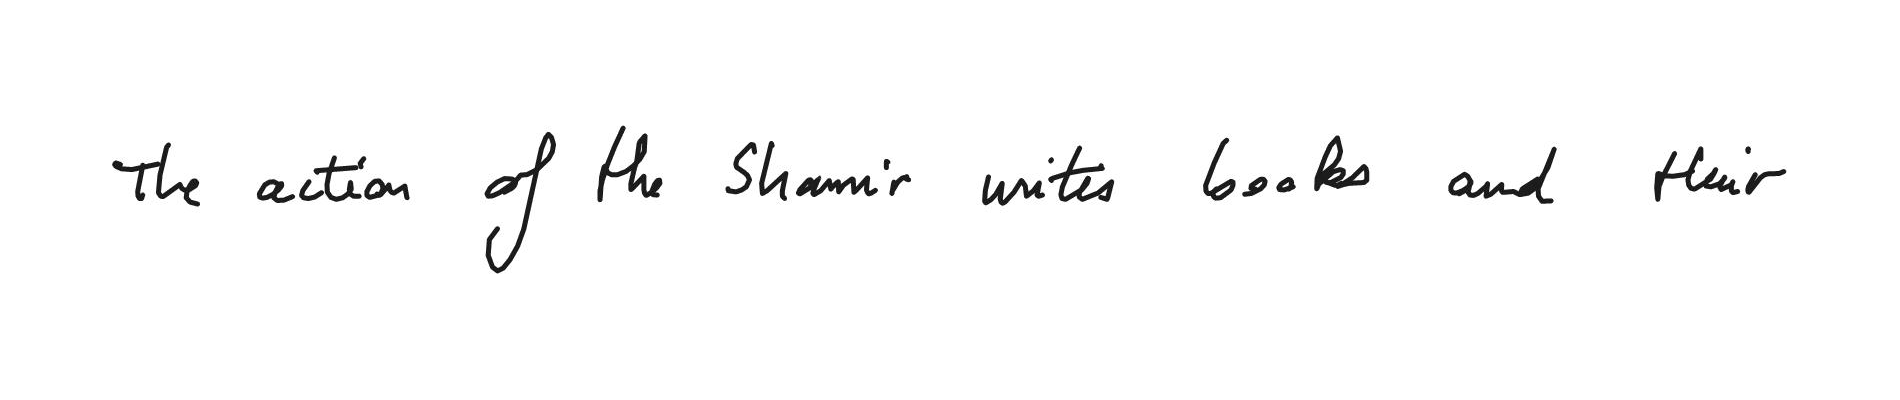 The action of the Shamir writes books and their